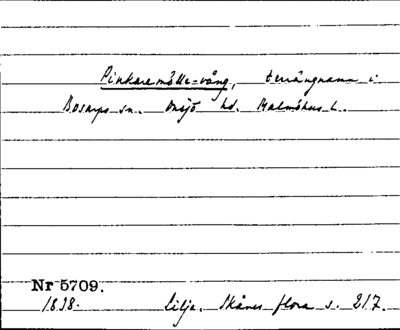 Pinkaremölle-vång, terrängnamn i
Bosarps sn. Onsjö hd. Malmöhus L.
Nr 5709.
1838. Lilja. Skånes flora s. 217.